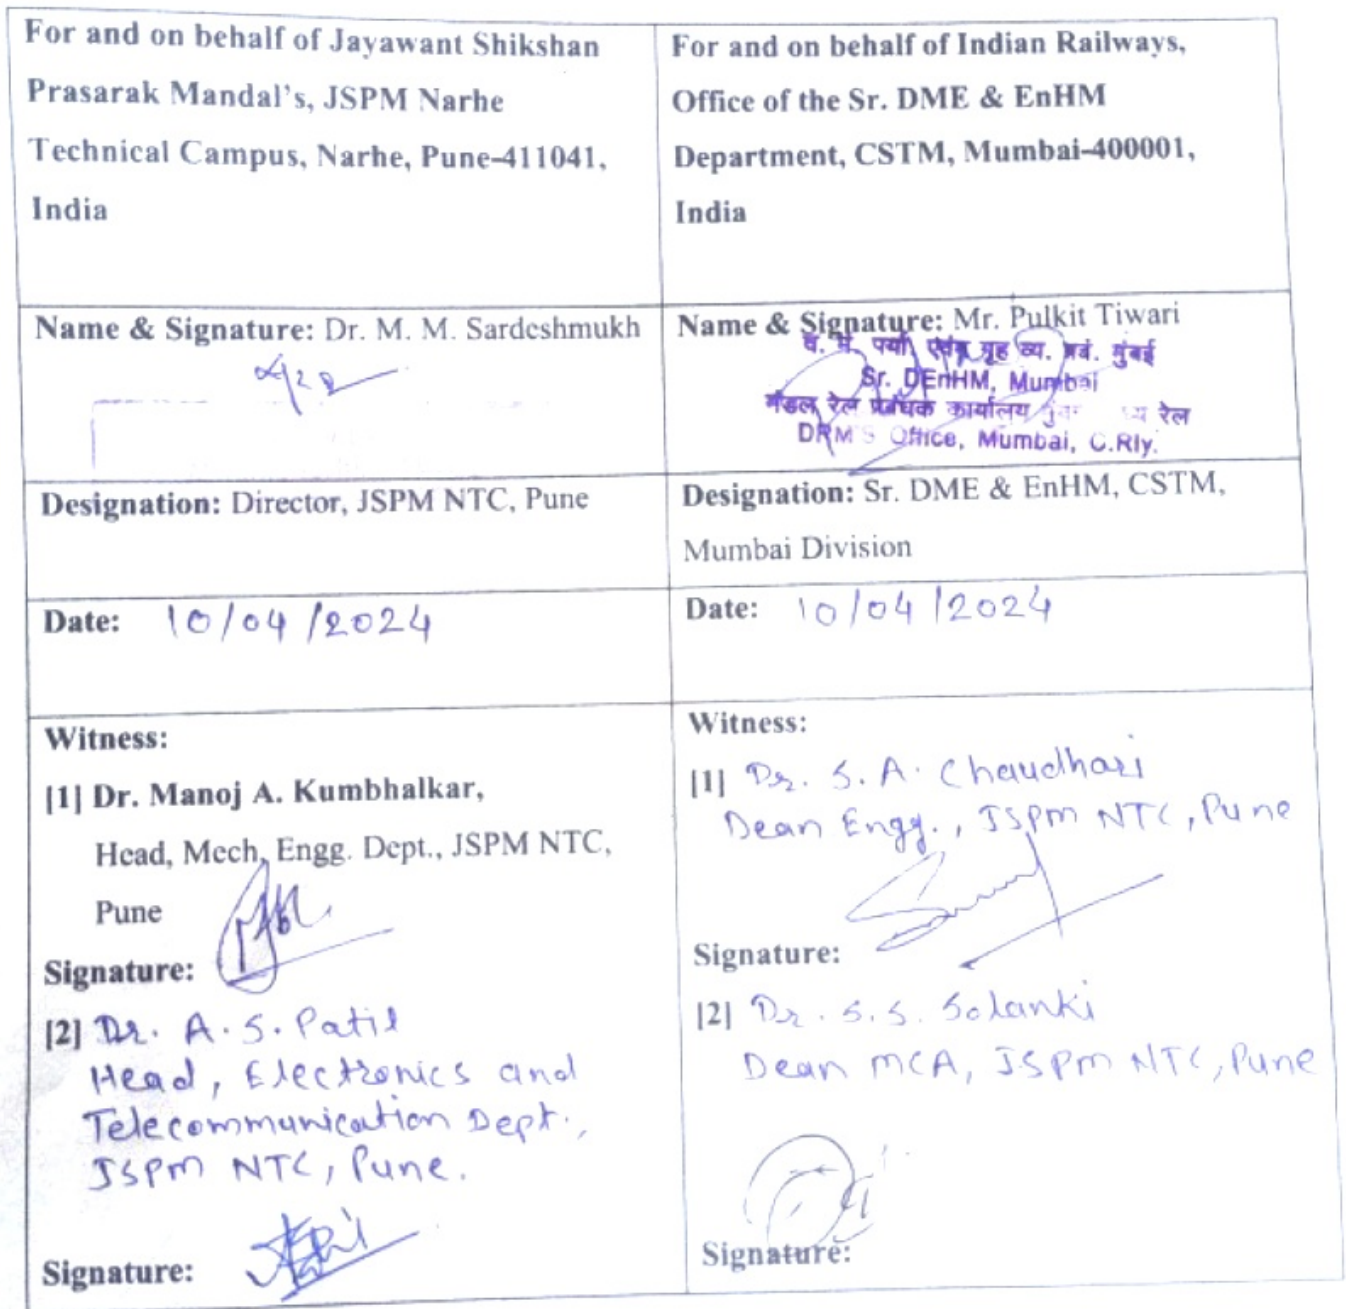 For and on behalf of Jayawant Shikshan
Prasarak Mandal's, JSPM Narhe
Technical Campus, Narhe, Pune-411041,
India
For and on behalf of Indian Railways,
Office of the Sr. DME & EnHM
Department, CSTM, Mumbai-400001,
India
Name & Signature: Dr. M. M. Sardeshmukh
Name & Signature: Mr. Pulkit Tiwari
गृह व्य. प्रबं. मुंबई
Sr. DEnHM, Mumbai
मंडल रेल प्रबंधक कार्यालय रेल
DRM'S Office, Mumbai, C.Rly.
Designation: Director, JSPM NTC, Pune
Designation: Sr. DME & EnHM, CSTM,
Mumbai Division
Date: 10/04/2024
Date: 10/04/2024
Witness:
[1] Dr. Manoj A. Kumbhalkar,
Head, Mech, Engg. Dept., JSPM NTC,
Pune
Signature:
[2] Dr. A. S. Patil
Head, Electronics and
Telecommunication Dept.,
JSPM NTC, Pune.
Signature:
Witness:
[1] Dr. S. A. Chaudhari
Dean Engg., JSPM NTC, Pune
Signature:
[2] Dr. S. S. Solanki
Dean MCA, JSPM NTC, Pune
Signature: